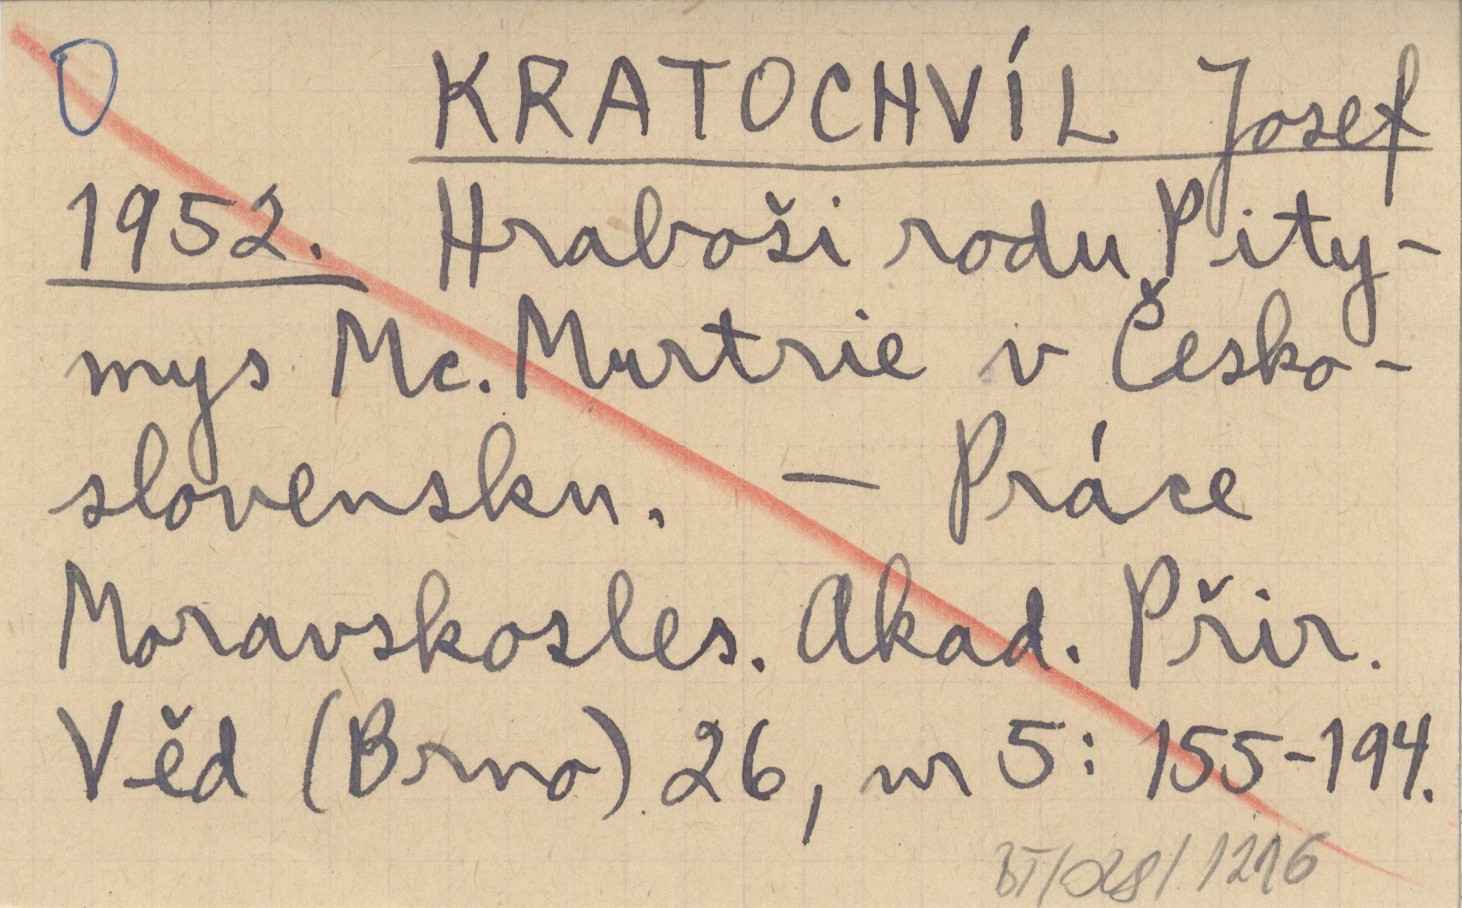 O KRATOCHVÍL Josef
1952. Hraboši rodu Pity-
mys Mc. Murtrie v Česko-
slovensku. — Práce
Moravskosles. Akad. Přir.
Věd (Brno) 26, nr 5: 155-194.
BT/028/1216